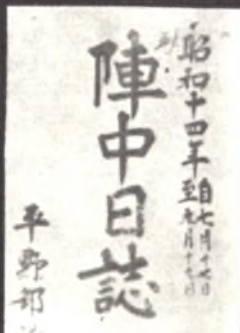 昭和十四年 自七月十七日
至九月十七日
陣中日誌
平野部